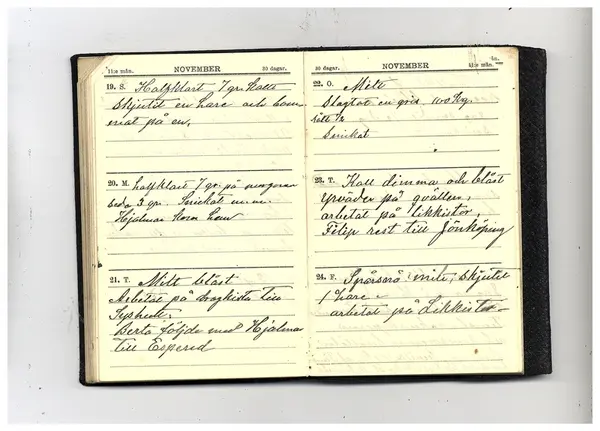 11:e mån. NOVEMBER 30 dagar.
19. S. Halfklart 7 gr. kallt
Skjutit en hare och bom
mat på en,
20. M. halfklart 7 gr. på morgonen
3 gr. Snickat m.m.
Hjalmar kom hem
21. T. Milt blåst
Arbetat på dragkista till
Berta följde med Hjalmar
till Espered
30 dagar. NOVEMBER 11:e mån.
22. O. Milt
Slagtat en gris 100 kg.
Snickat
23. T. Kall dimma och blåst
Yrväder på qvällen,
arbetat på likkistor,
Filip rest till Jönköping
24. F. Spårsnö mile, skjutit
1 hare
arbetat på Likkistor